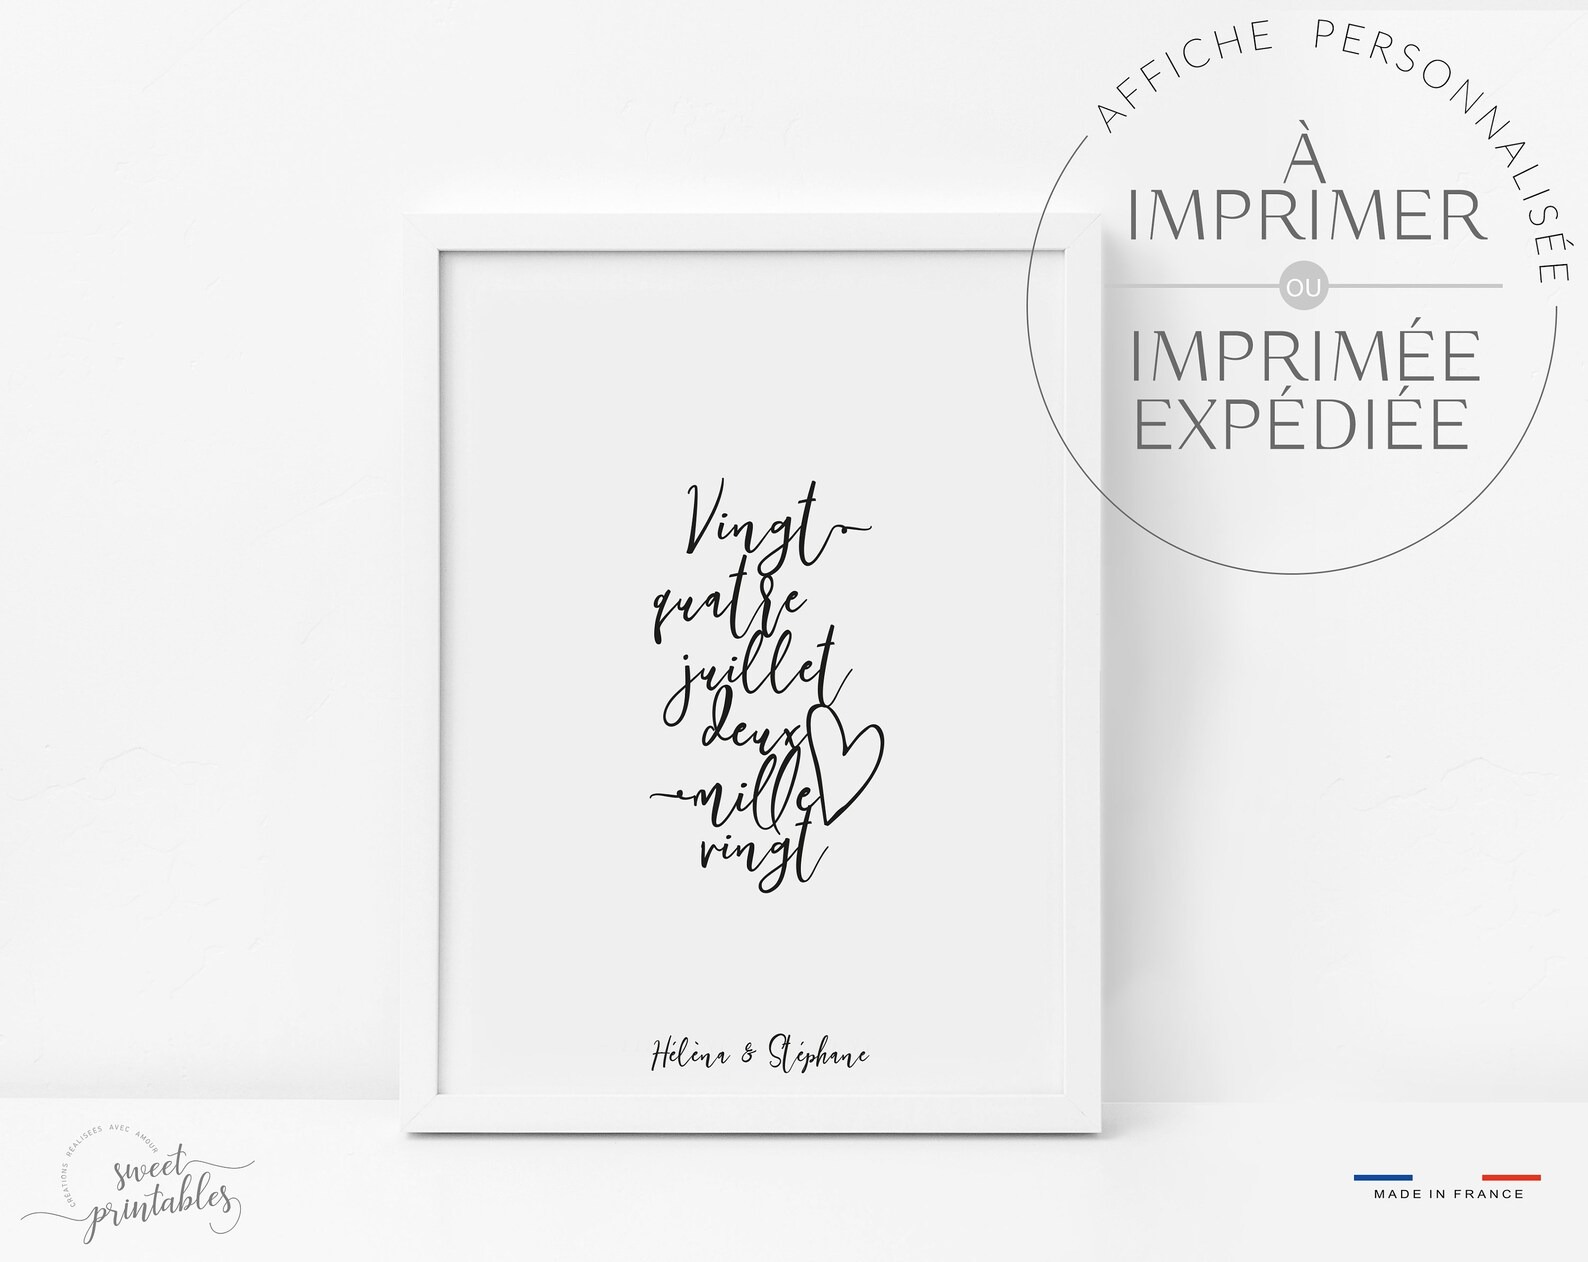 AFFICHE PERSONNALISÉE
À
IMPRIMER
OU
IMPRIMÉE
EXPÉDIÉE
Vingt
quatre
juillet
deux
mille
vingt
Hélèna & Stéphane
CREATIONS REALISEES AVEC AMOUR
sweet
printables
MADE IN FRANCE